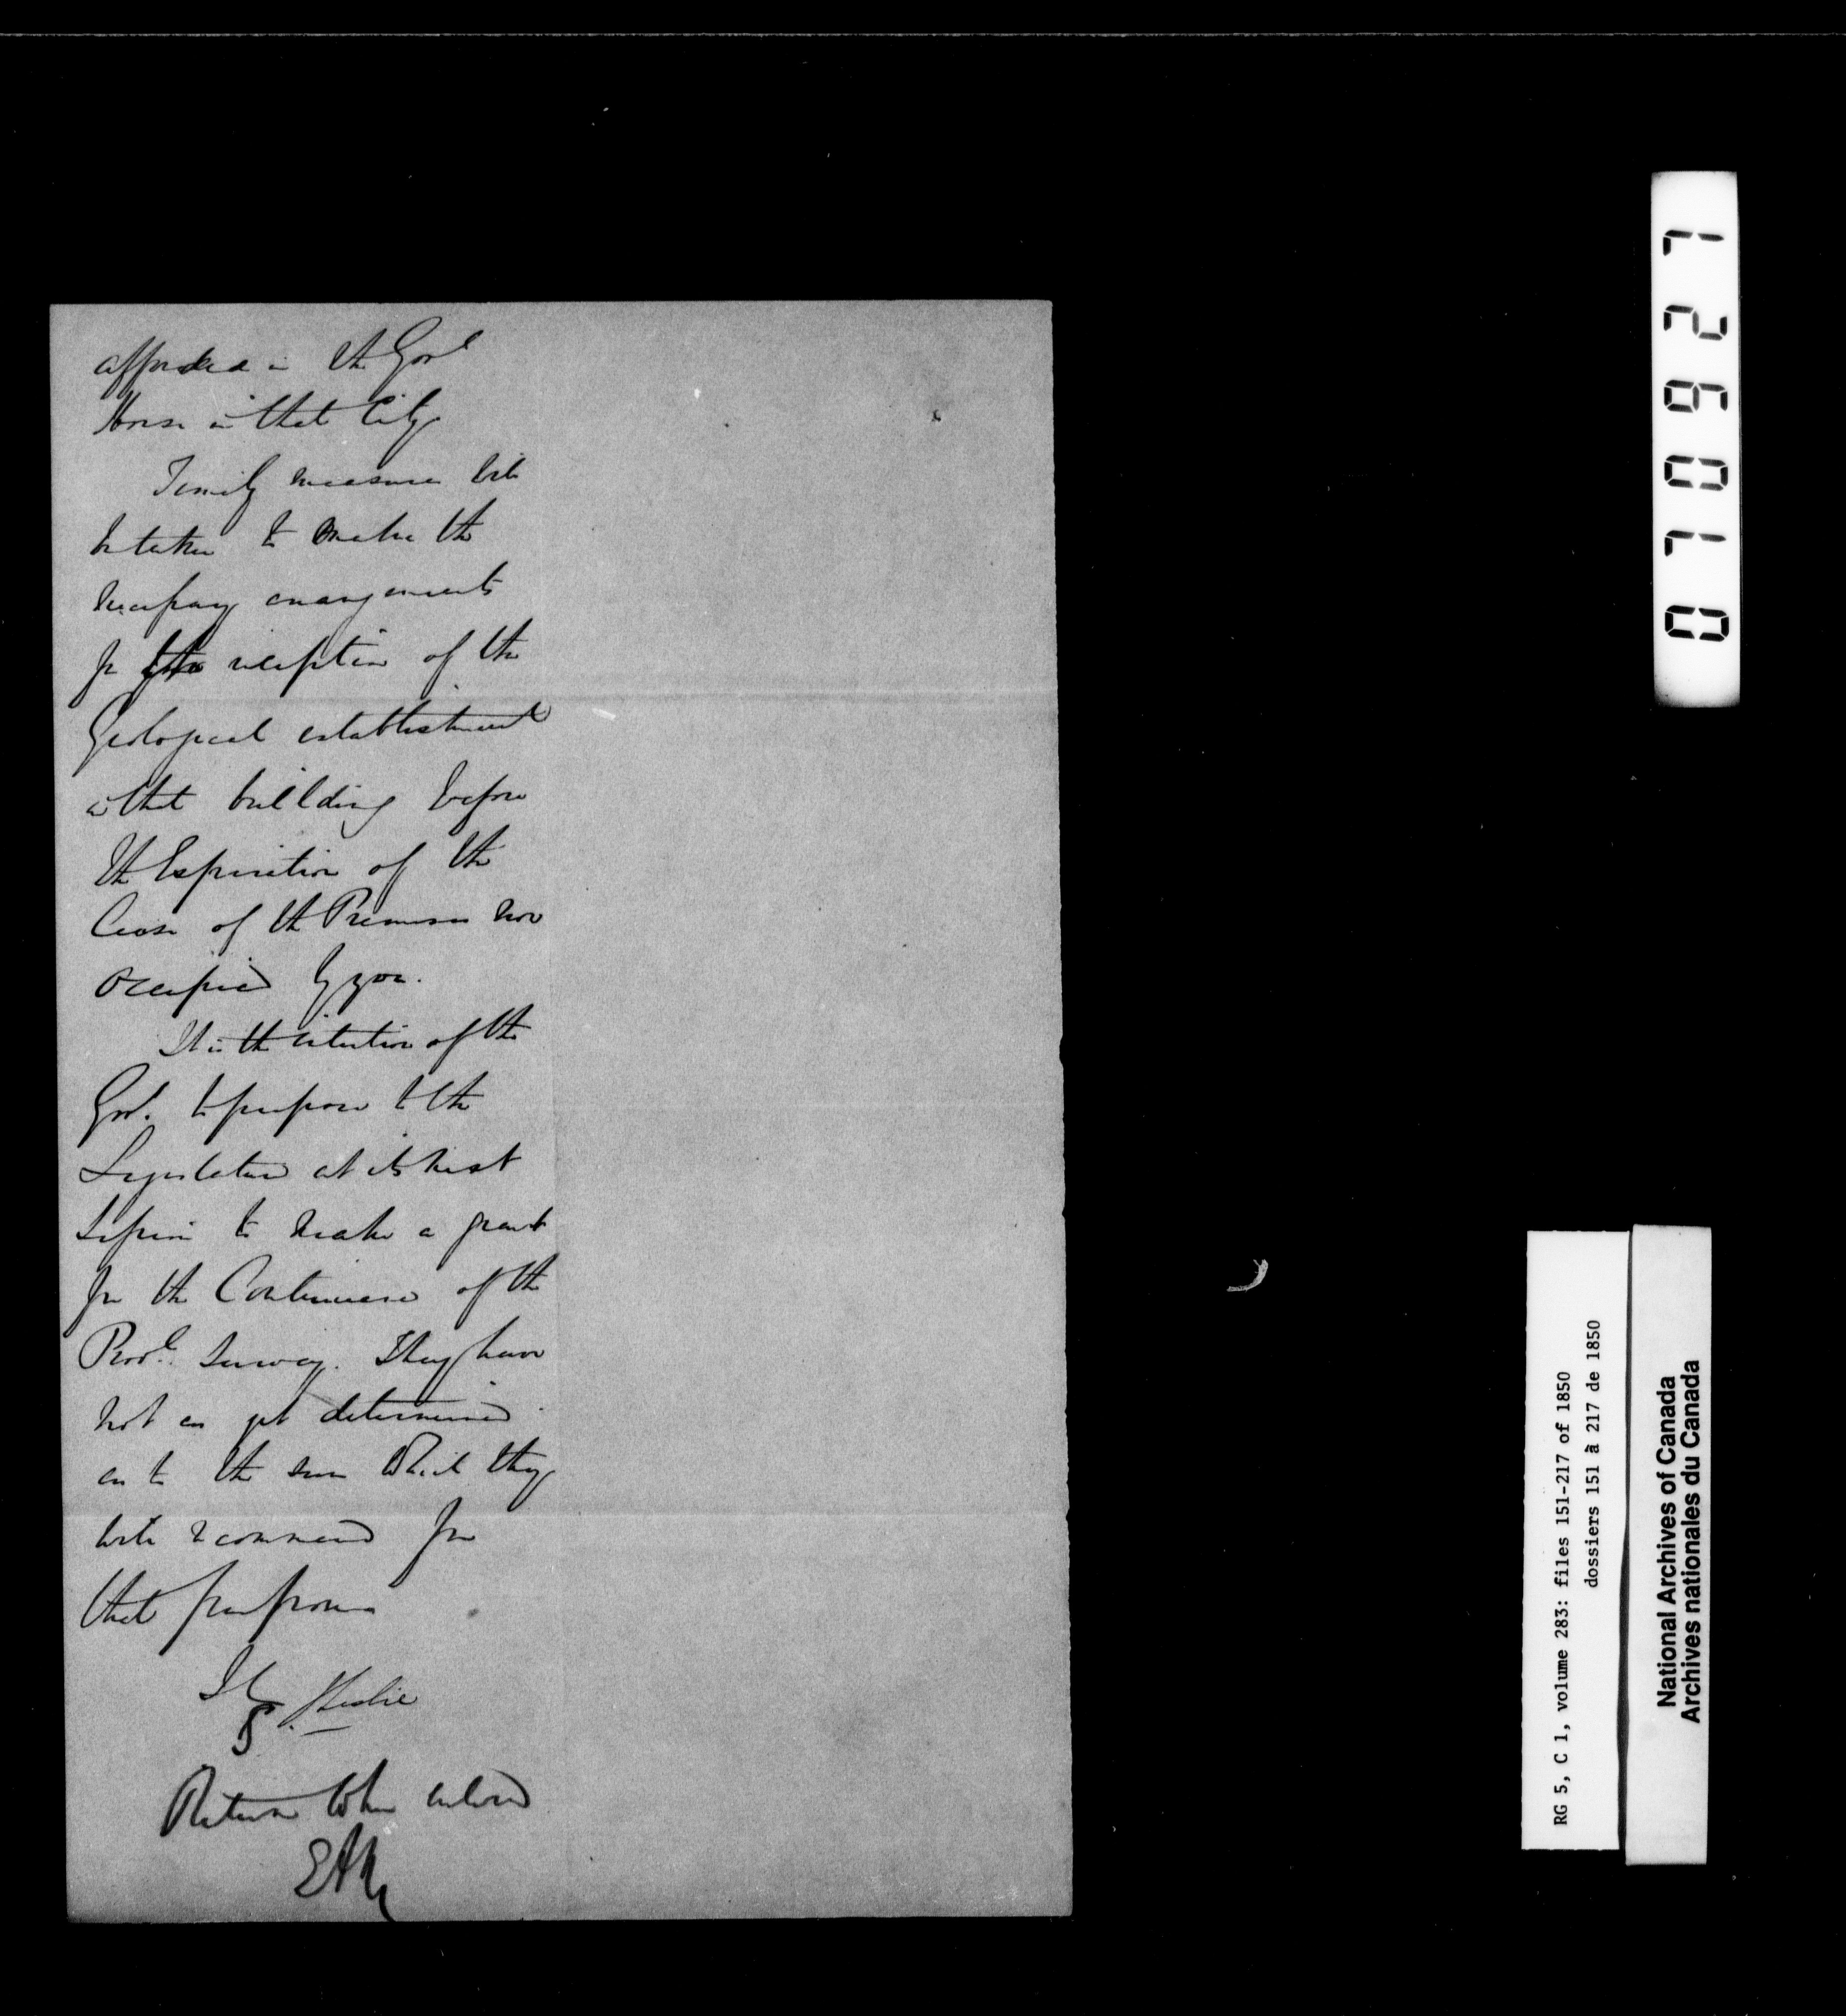 afforded in the Govt
House in that City
Timely measures will
be taken to make the
necessary arrangements
for the reception of the
Geological establishment
in that building before
the Expiration of the
Lease of the Premises now
occupied by you.
It is the intention of the
Govt. to propose to the
Legislature at its next
Session to make a grant
for the Continuance of the
Provl. Survey. They have
not as yet determined
as to the sum which they
will recommend for
that purpose
J. Leslie
Return when entered
EAM
017097
RG 5, C 1, volume 283: files 151-217 of 1850
dossiers 151 à 217 de 1850
National Archives of Canada
Archives nationales du Canada